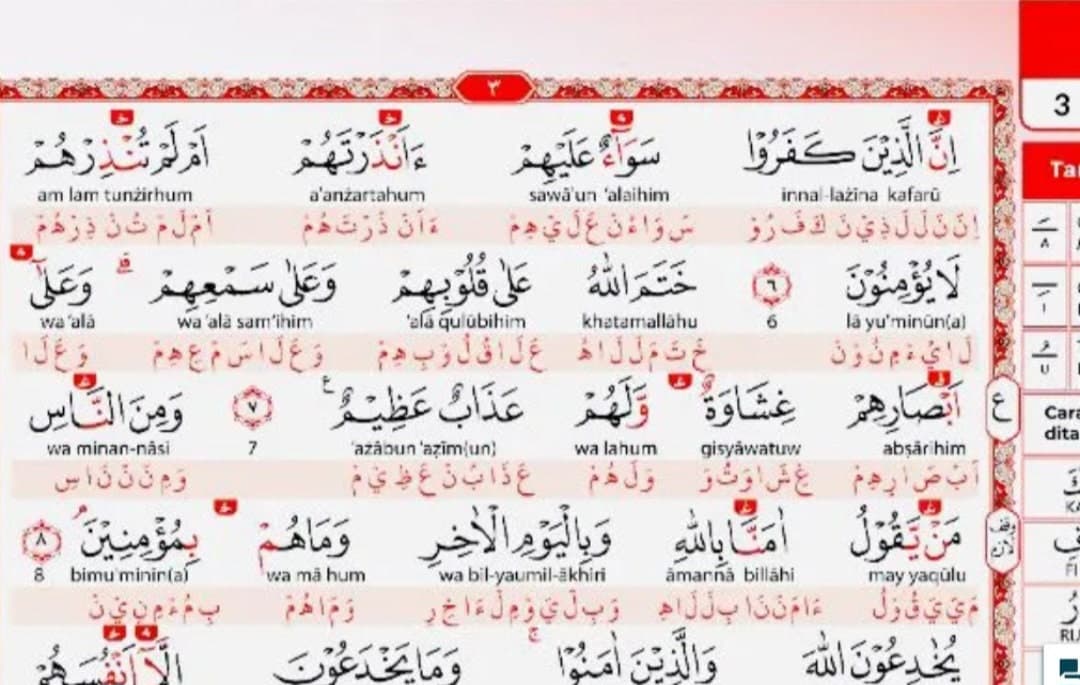 ٣
اِنَّ الَّذِيْنَ كَفَرُوْا سَوَاۤءٌ عَلَيْهِمْ ءَاَنْذَرْتَهُمْ اَمْ لَمْ تُنْذِرْهُمْ
innal-lażīna kafarū sawā'un 'alaihim a'anżartahum am lam tunżirhum
اِنَ نَلْ لَذِيْ نَ كَ فَ رُوْ سَ وَاءُنْ عَ لَيْ هِمْ ءَاَنْ ذَرْ تَ هُمْ اَمْ لَمْ تُنْ ذِرْ هُمْ
لَا يُؤْمِنُوْنَ ٦ خَتَمَ اللّٰهُ عَلٰى قُلُوْبِهِمْ وَعَلٰى سَمْعِهِمْ ۗ وَعَلٰٓى
lā yu'minūn(a) 6 khatamallāhu 'alā qulūbihim wa 'alā sam'ihim wa 'alā
لَا يُءْ مِ نُوْ نْ خَ تَ مَلْ لَا هُ عَ لَا قُ لُوْ بِ هِمْ وَ عَ لَا سَمْ عِ هِمْ وَ عَ لَا
اَبْصَارِهِمْ غِشَاوَةٌ وَّلَهُمْ عَذَابٌ عَظِيْمٌ ٧ وَمِنَ النَّاسِ
abṣārihim gisyāwatuw wa lahum 'ażābun 'aẓīm(un) 7 wa minan-nāsi
اَبْ صَا رِ هِمْ غِ شَا وَ تُوْ وَ لَ هُمْ عَ ذَا بُنْ عَ ظِيْ مْ وَ مِ نَنْ نَا سِ
مَنْ يَّقُوْلُ اٰمَنَّا بِاللّٰهِ وَبِالْيَوْمِ الْاٰخِرِ وَمَا هُمْ بِمُؤْمِنِيْنَ ۘ ٨
may yaqūlu āmannā billāhi wa bil-yaumil-ākhiri wa mā hum bimu'minīn(a) 8
مَيْ يَ قُوْ لُ ءَا مَنْ نَا بِلْ لَا هِ وَ بِلْ يَوْ مِلْ ءَا خِ رِ وَ مَا هُمْ بِ مُءْ مِ نِيْ نْ
يُخٰدِعُوْنَ اللّٰهَ وَالَّذِيْنَ اٰمَنُوْا ۚ وَمَا يَخْدَعُوْنَ اِلَّآ اَنْفُسَهُمْ
ع
3
Cara
dita
FI